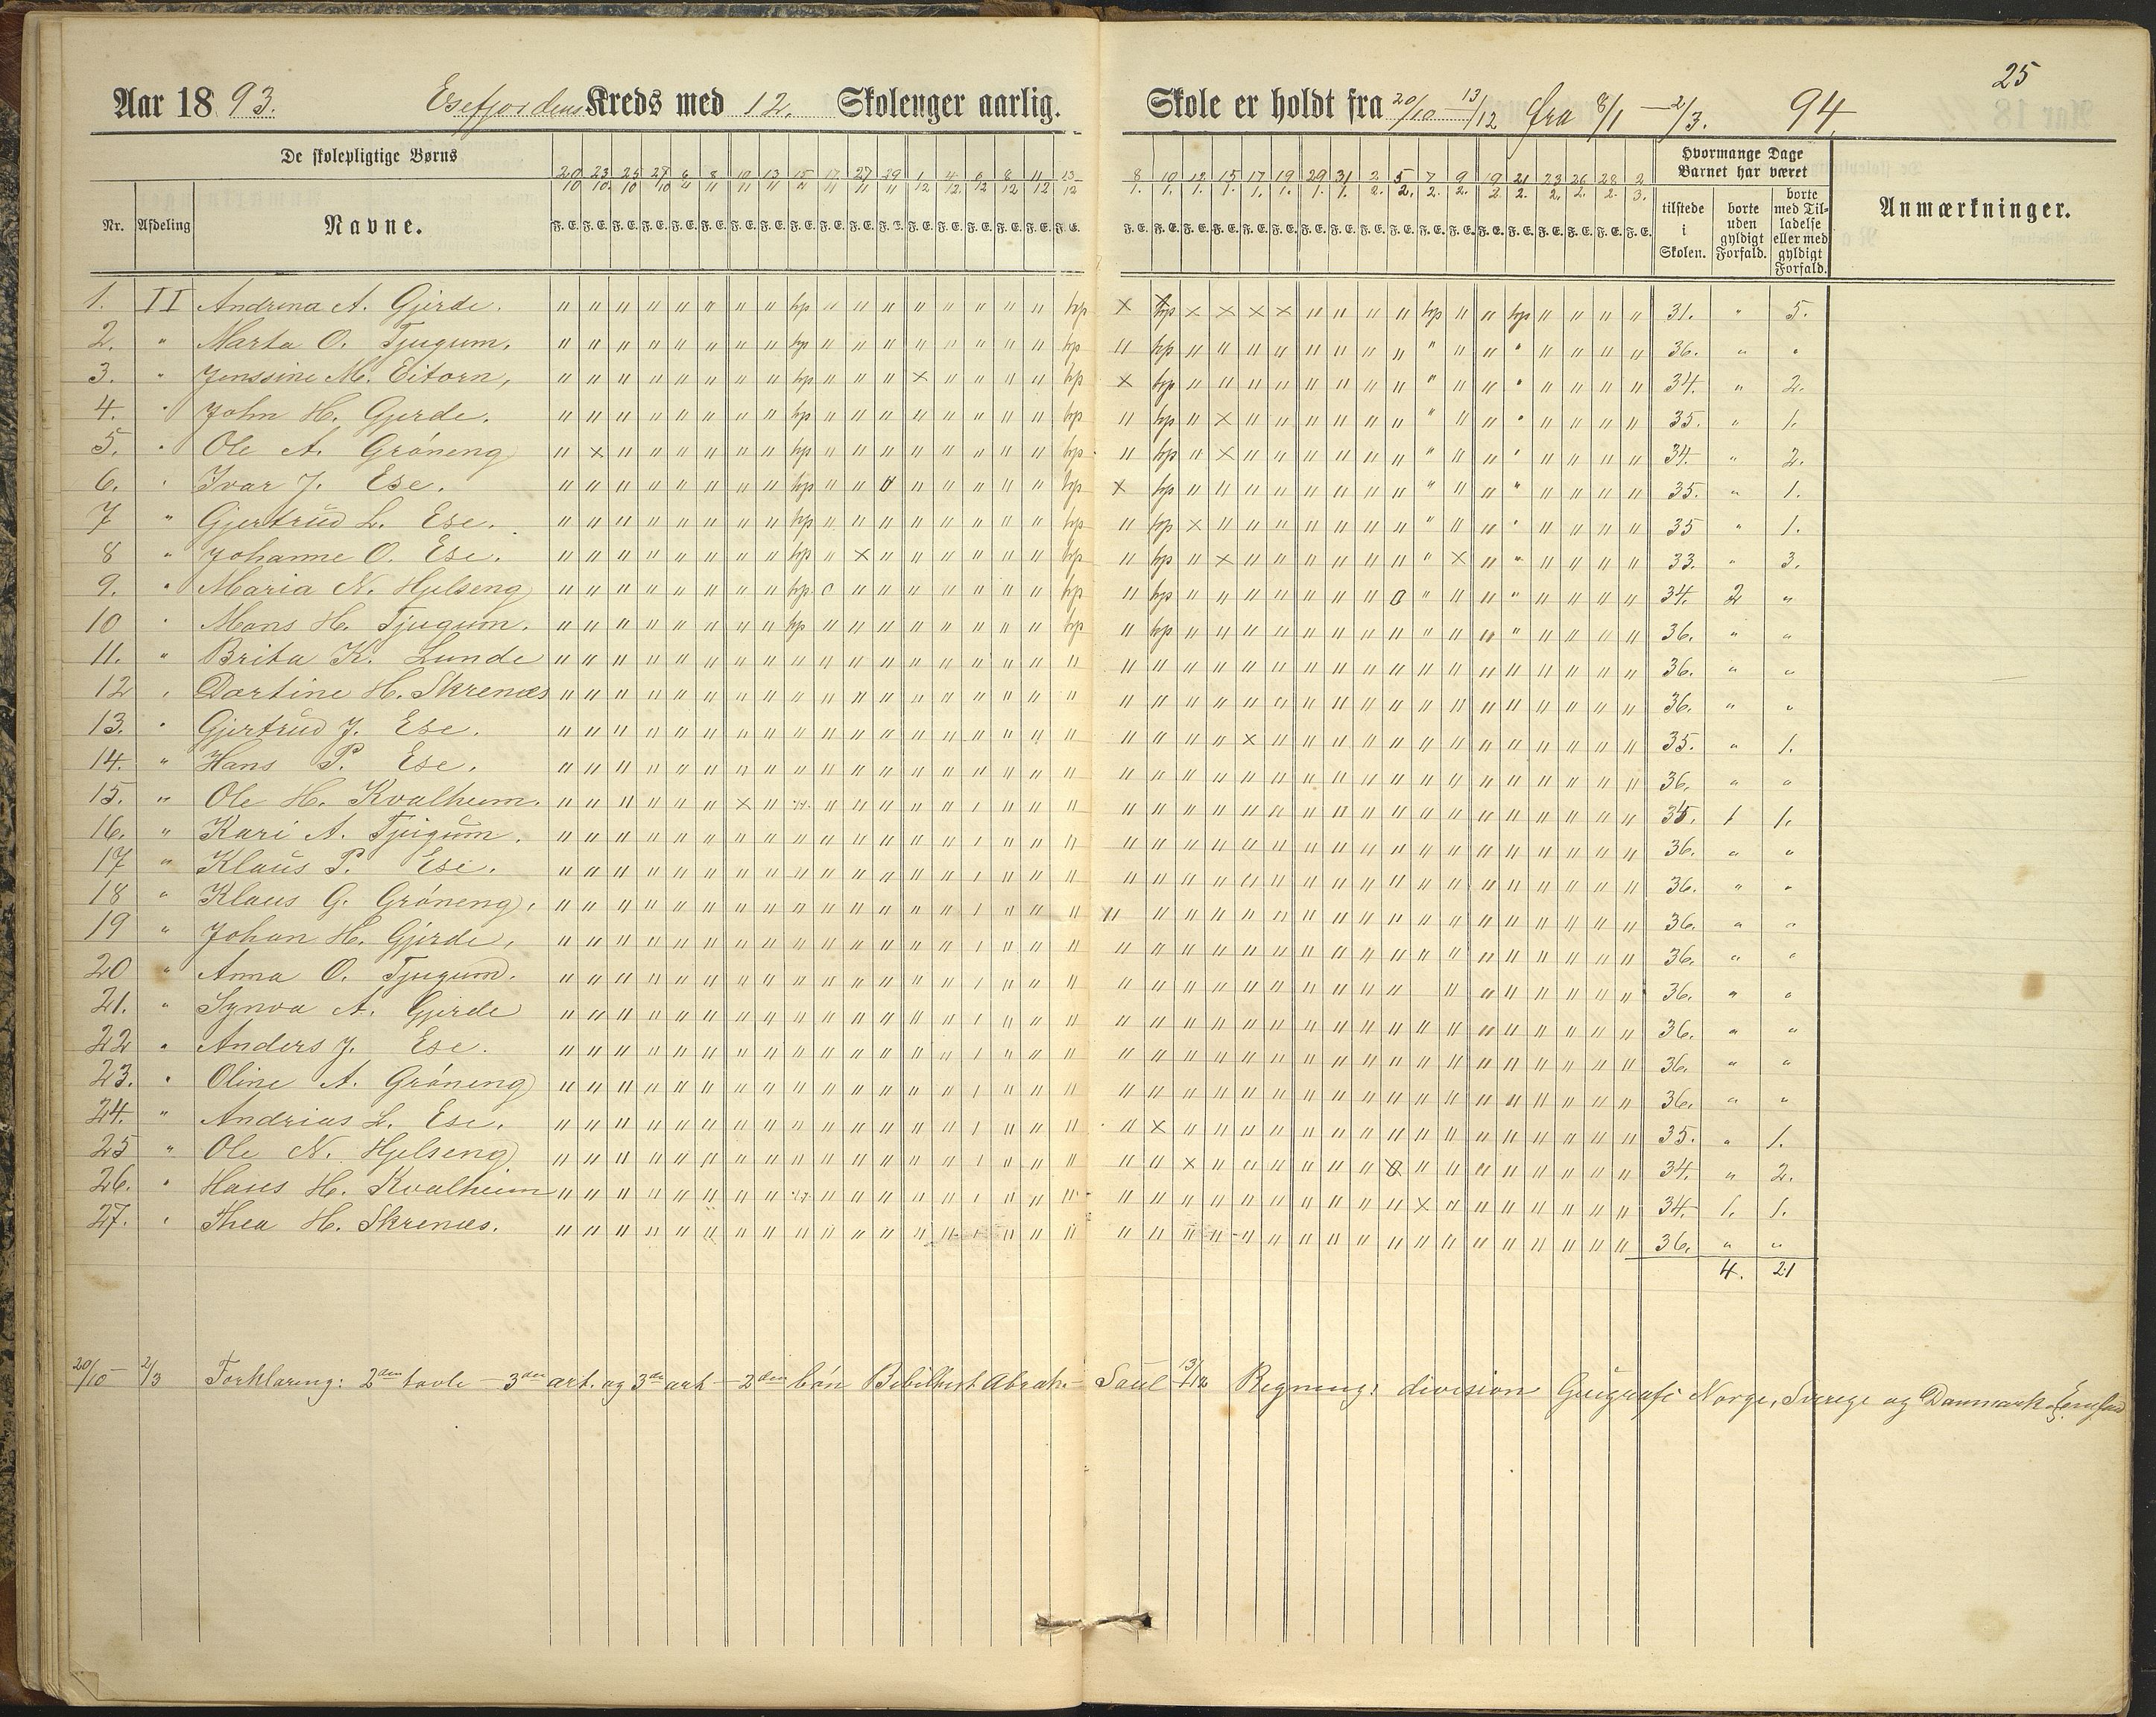 25
Aar 1893. Esefjordens Kreds med 12. Skolenger aarlig. Skole er holdt fra 20/10 — 13/12 fra 8/1 — 2/3. 94.
De skolepligtige Børns
Hvormange Dage Barnet har været
20/10 23/10 25/10 27/10 6/11 8/11 10/11 13/11 15/11 17/11 27/11 29/11 1/12 4/12 6/12 8/12 11/12 13/12 8/1. 10/1. 12/1. 15/1. 17/1. 19/1. 29/1. 31/1. 2/2. 5/2. 7/2. 9/2. 19/2 21/2. 23/2. 26/2. 28/2. 2/3.
Nr. Afdeling Navne. F. E. tilstede i Skolen. borte uden gyldigt Forfald. borte med Tilladelse eller med gyldigt Forfald. Anmærkninger.
1. II Andrina A. Gjerde. 31. " 5.
2. " Marta O. Tjugum. 36. " "
3. " Jenssine M. Eitorn, 34. " 2.
4. " John H. Gjerde. 35. " 1.
5. " Ole A. Gróneng 34. " 2.
6. " Ivar J. Ese. 35. " 1.
7 " Gjertrud L. Ese. 35 " 1.
8 " Johanne O. Ese. 33. " 3.
9. " Maria N. Hjelseng 34. 2 "
10 " Mons H. Tjugum. 36. " "
11. " Brita K. Lunde 36. " "
12 " Dortine H. Skrenæs 36. " "
13. " Gjertrud J. Ese. 35. " 1.
14. " Hans P. Ese. 36. " "
15. " Ole H. Kvalheim. 35. 1 1.
16. " Kari A. Tjugum. 36. " "
17 " Klaus P. Ese. 36. " "
18 " Klaus G. Gróneng. 36. " "
19 " Johan H. Gjerde. 36. " "
20 " Anna O. Tjugum. 36. " "
21. " Synva A. Gjerde 36. " "
22 " Anders J. Ese. 36. " "
23. " Oline A. Gróneng 36. " "
24. " Andrias L. Ese. 35. " 1.
25 " Ole N. Hjelseng 34. " 2.
26. " Hans H. Kvalheim 34. 1. 1.
27. " Thea H. Skrenæs. 36. " "
4. 21
20/10 — 2/3 Forklaring: 2den tavle — 3den art. og 3die art — 2den bón Bibelhist Abrah. — Saul 13/12 Regning: division Geografi Norge, Sverige og Danmark.